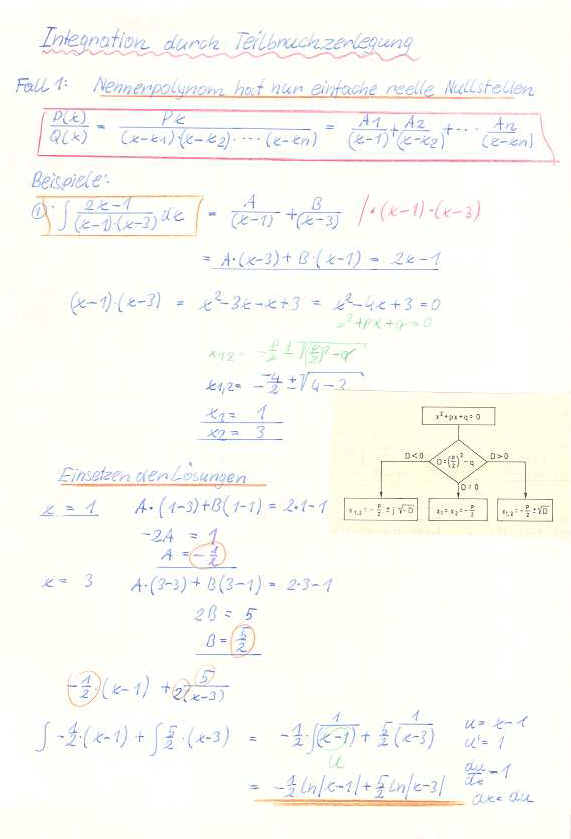 Integration durch Teilbruchzerlegung
Fall 1: Nennerpolynom hat nur einfache reelle Nullstellen
P(x)/Q(x) = Px/((x-x1)·(x-x2)·....·(x-xn)) = A1/(x-x1) + A2/(x-x2) + ... An/(x-xn)
Beispiele:
① ∫ (2x-1)/((x-1)·(x-3)) dx = A/(x-1) + B/(x-3) /·(x-1)·(x-3)
= A·(x-3) + B·(x-1) = 2x-1
(x-1)·(x-3) = x²-3x-x+3 = x²-4x+3 = 0
x²+px+q=0
x1,2 = -p/2 ± √((p/2)²-q)
x1,2 = -(-4)/2 ± √(4-3)
x1 = 1
x2 = 3
x²+px+q=0
D<0 D=(p/2)²-q D>0
D=0
x1,2=-p/2 ± j√-D x1=x2=-p/2 x1,2=-p/2 ± √D
Einsetzen der Lösungen
x = 1 A·(1-3)+B(1-1) = 2·1-1
-2A = 1
A = -1/2
x = 3 A·(3-3) + B(3-1) = 2·3-1
2B = 5
B = 5/2
-1/2·(x-1) + 5/(2(x-3))
∫ -1/2·(x-1) + ∫ 5/2·(x-3) = -1/2·∫ 1/(x-1) + 5/2 1/(x-3) u = x-1
u' = 1
u
du/dx = 1
= -1/2 ln|x-1| + 5/2 ln|x-3| dx = du